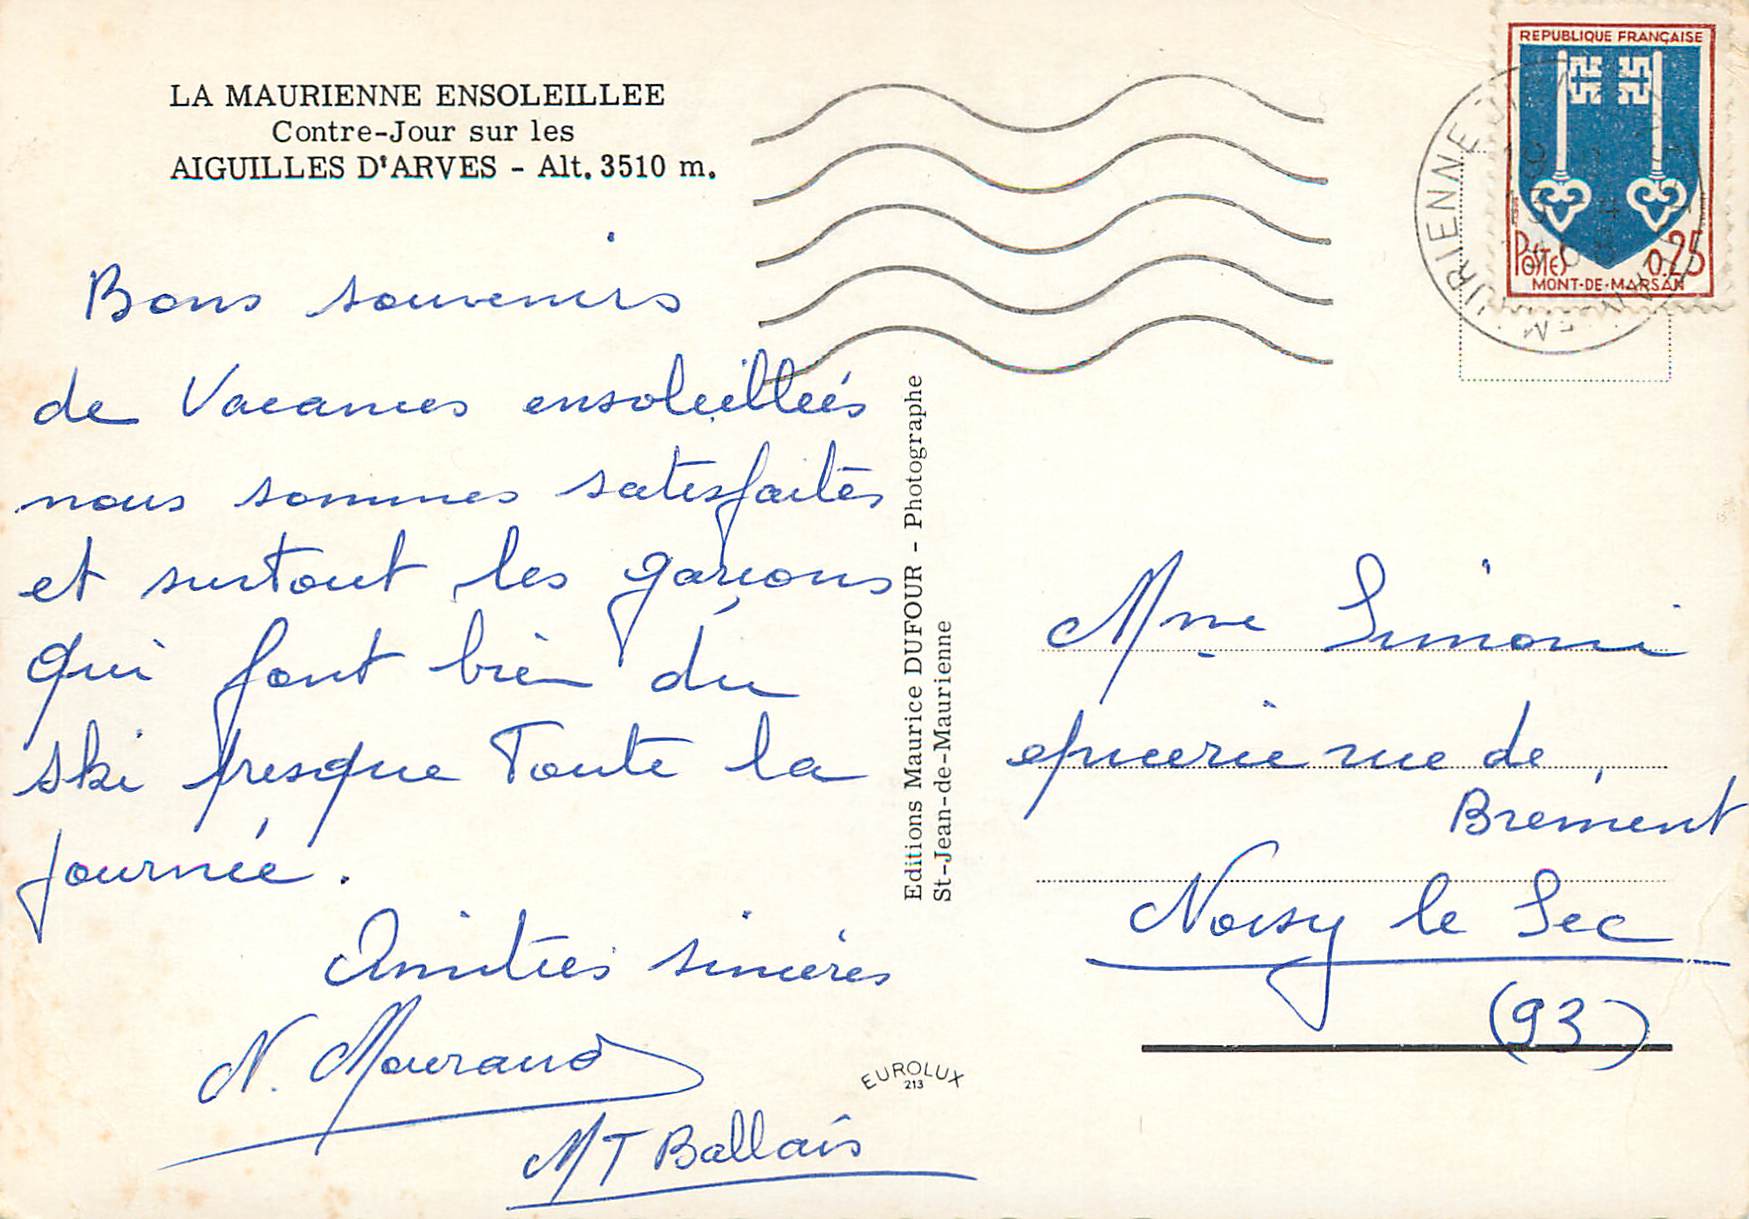 LA MAURIENNE ENSOLEILLEE
Contre-Jour sur les
AIGUILLES D'ARVES - Alt. 3510 m.
Bons souvenirs
de Vacances ensoleillées
nous sommes satisfaites
et surtout les garçons
qui font bien du
ski presque toute la
journée.
Amitiés sincères
N. Mouraud
MT Ballais
Editions Maurice DUFOUR - Photographe
St-Jean-de-Maurienne
EUROLUX
213
REPUBLIQUE FRANÇAISE
Postes 0.25
MONT-DE-MARSAN
MAURIENNE
Mme Simoni
epicerie rue de
Brément
Noisy le Sec
(93)